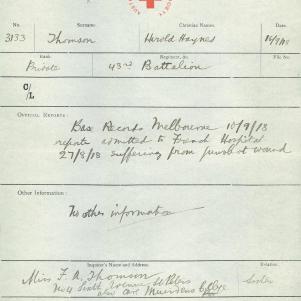 No. Surname. Christian Names. Date.
3133 Thomson Harold Haynes 16/9/18
Rank. Regiment, &c. File No.
Private 43rd Battalion
C/
/L
OFFICIAL REPORTS:
Base Records Melbourne 10/9/18
reports admitted to French Hospital
27/8/18 suffering from gunshot wound
Other Information:
No other information
Inquirer's Name and Address. Relation.
Miss F. A. Thomson Sister
Sixth Avenue St Peters